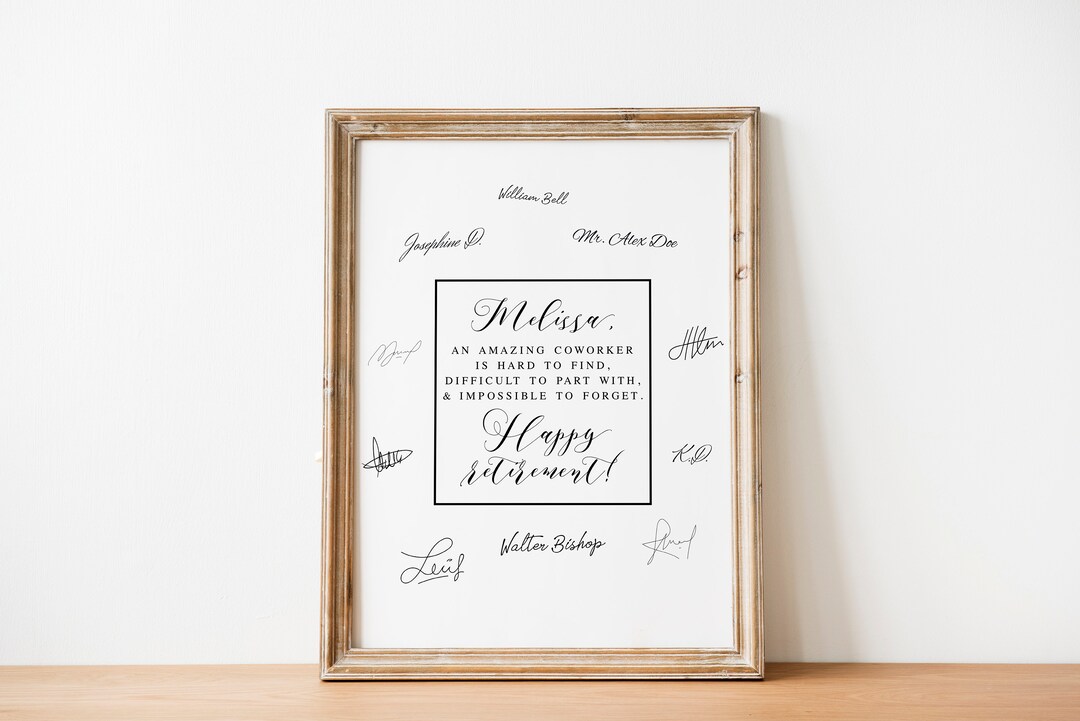 William Bell
Josephine D.
Mr. Alex Doe
Melissa,
AN AMAZING COWORKER
IS HARD TO FIND,
DIFFICULT TO PART WITH,
& IMPOSSIBLE TO FORGET.
Happy
retirement!
K.D.
Walter Bishop